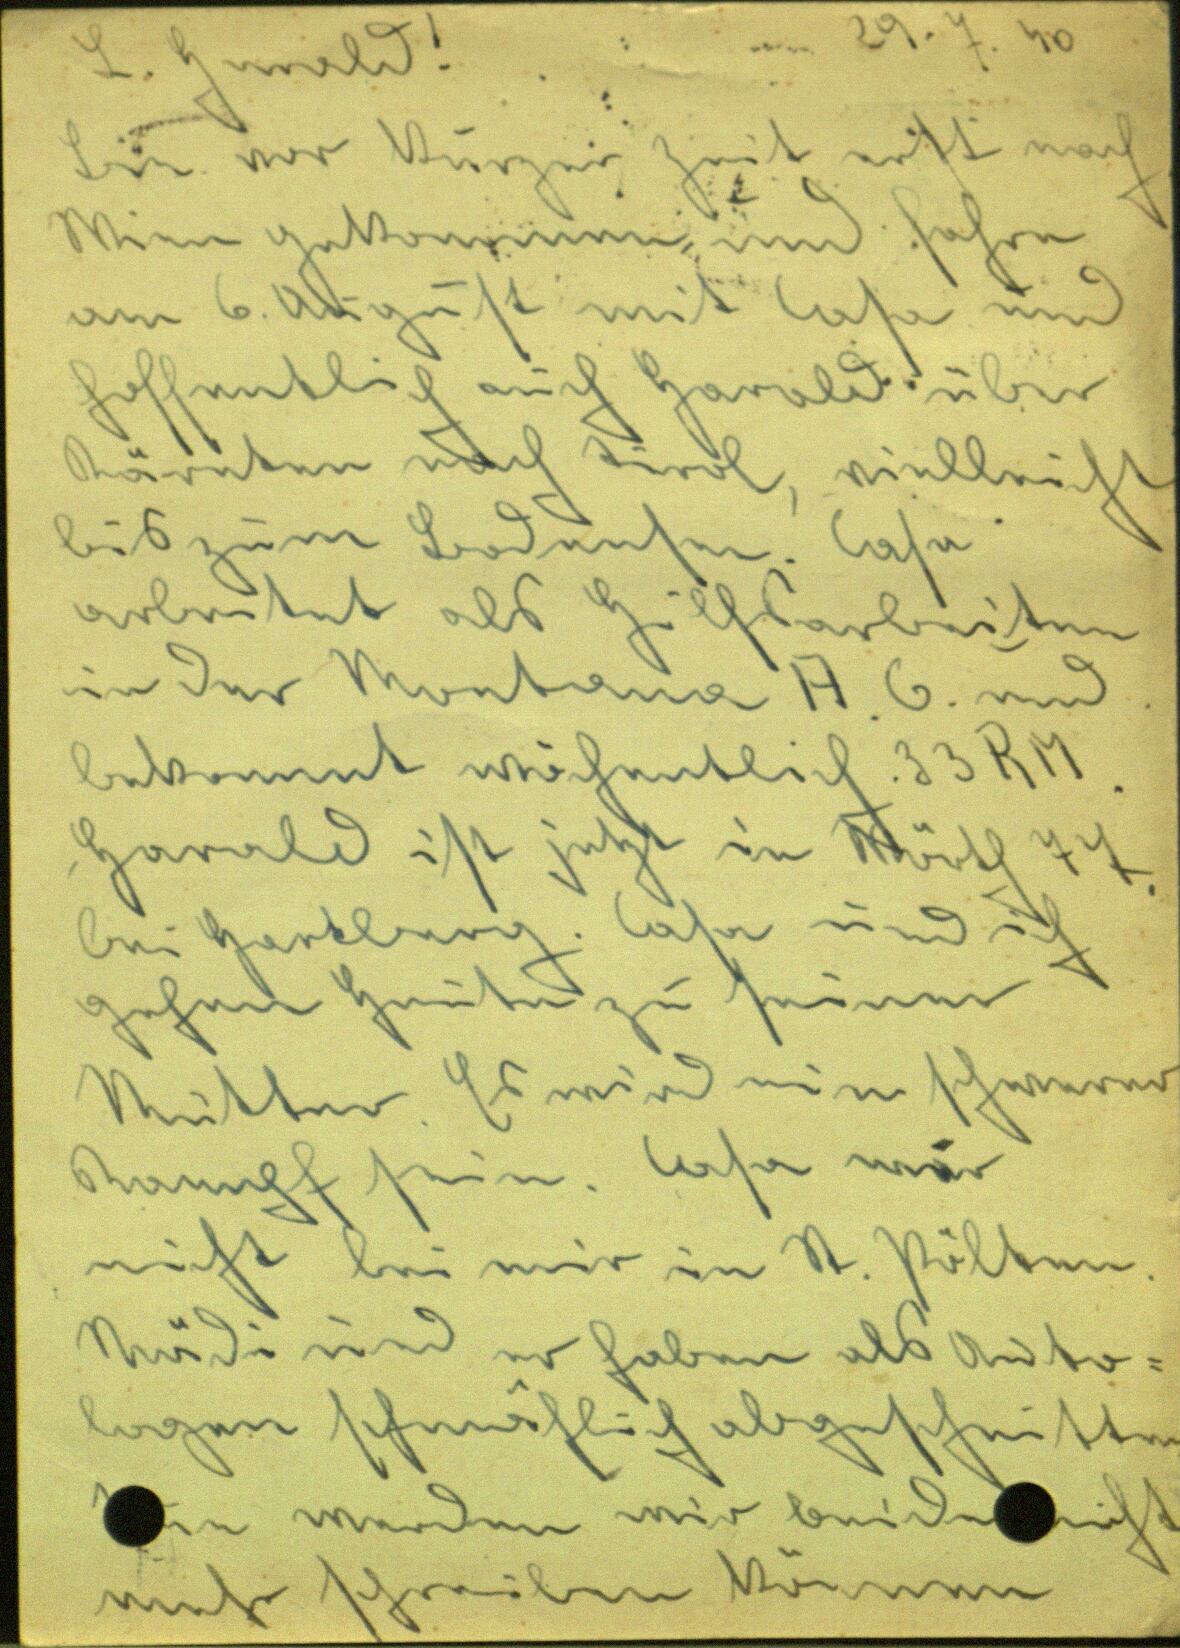 L. Gerald! 29. 7. 40
Bin vor Kurzer Zeit erst nach
Wien gekommen, und fahre
am 6. August mit Case und
hoffentlich auch Harald über
Kärnten nach Tirol, vielleicht
bis zum Bodensee. Case
arbeitet als Hilfsarbeiter
in der Montana A. G. und
bekommt wöchentlich 33 RM.
Harald ist jetzt in Wörth 77.
bei Hartberg. Case und ich
gehen Heute zu seiner
Mutter. Es wird ein schwerer
Kampf sein. Case war
nicht bei mir in St. Pölten.
Mädi und er haben als Auto=
logen schmählich abgeschnitten
werden wir beide nicht
mehr schreiben können